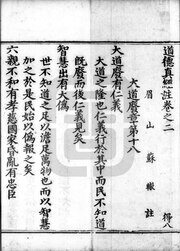 道德真經註卷之二 得八
眉山蘇轍註
大道廢章第十八
大道廢有仁義
大道之隆也仁義行於其中而民不知道
既廢而後仁義見矣
智慧出有大僞
世不知道之足以澹足萬物也而以智慧
加之於是民始以僞報之矣
六親不和有孝慈國家昏亂有忠臣